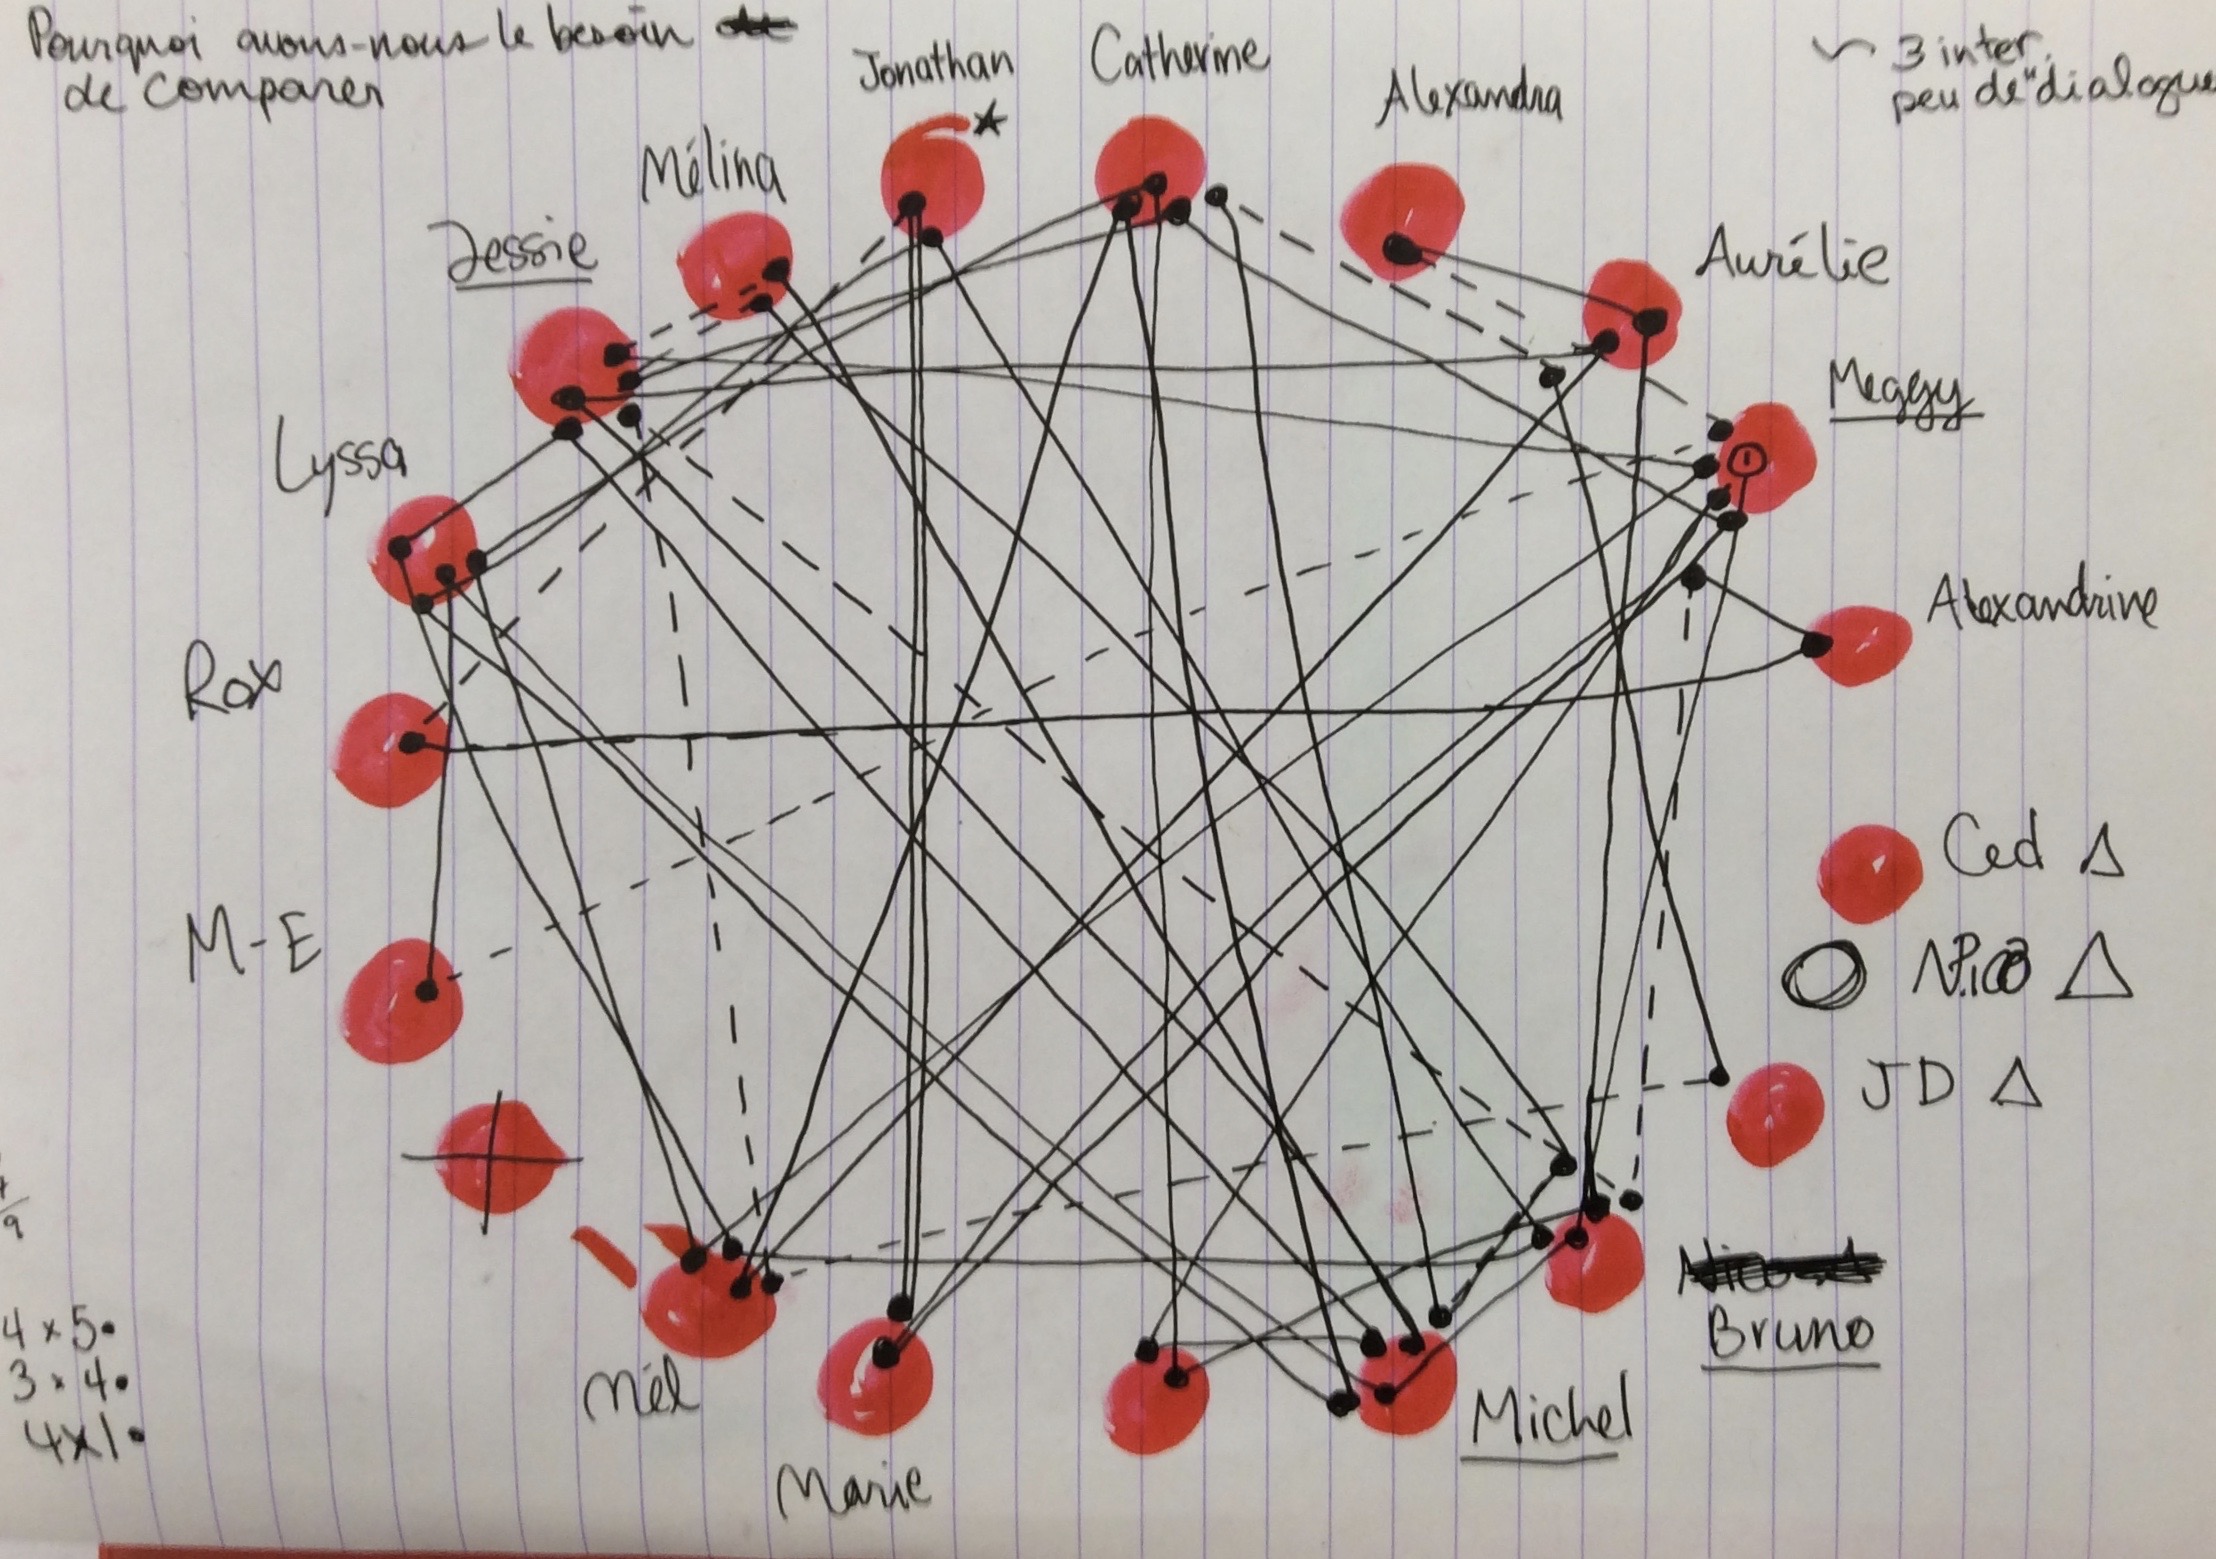 Pourquoi avons-nous le besoin
de comparer
~ 3 inter.
peu de "dialogue
Jonathan
Catherine
Alexandra
Mélina
Jessie
Aurélie
Meggy
Lyssa
Alexandrine
Rox
M-E
Ced Δ
Nico Δ
JD Δ
Bruno
Michel
Mél
Marie
4 x 5•
3 x 4•
4x1•